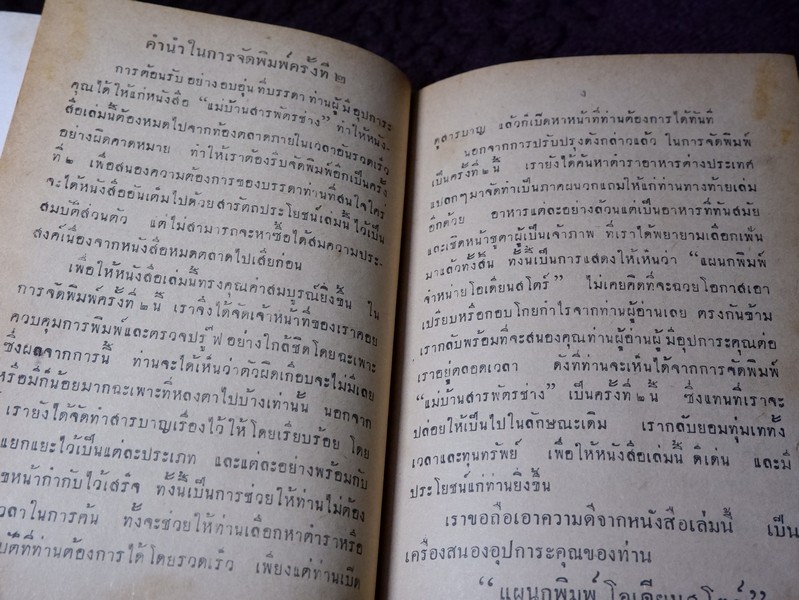 คำนำในการจัดพิมพ์ครั้งที่ ๒
การต้อนรับอย่างอบอุ่นที่บรรดาท่านผู้มีอุปการะ
คุณได้ให้แก่หนังสือ “แม่บ้านสารพัตรช่าง” ทำให้หนัง-
สือเล่มนี้ต้องหมดไปจากท้องตลาดภายในเวลาอันรวดเร็ว
อย่างผิดคาดหมาย ทำให้เราต้องรีบจัดพิมพ์อีกเป็นครั้ง
ที่ ๒ เพื่อสนองความต้องการของบรรดาท่านที่สนใจใคร่
จะได้หนังสืออันเต็มไปด้วยสารัตถประโยชน์เล่มนี้ไว้เป็น
สมบัติส่วนตัว แต่ไม่สามารถจะหาซื้อได้สมความประ-
สงค์เนื่องจากหนังสือหมดตลาดไปเสียก่อน
เพื่อให้หนังสือเล่มนี้ทรงคุณค่าสมบูรณ์ยิ่งขึ้น ใน
การจัดพิมพ์ครั้งที่ ๒ นี้ เราจึงได้จัดเจ้าหน้าที่ของเราคอย
ควบคุมการพิมพ์และตรวจปรู๊ฟอย่างใกล้ชิดโดยฉะเพาะ
ซึ่งผลจากการนี้ ท่านจะได้เห็นว่าตัวผิดเกือบจะไม่มีเลย
หรือมีก็น้อยมากฉะเพาะที่หลงตาไปบ้างเท่านั้น นอกจาก
เรายังได้จัดทำสารบาญเรื่องไว้ให้โดยเรียบร้อย โดย
แยกแยะไว้เป็นแต่ละประเภท และแต่ละอย่างพร้อมกับ
ขหน้ากำกับไว้เสร็จ ทั้งนี้เป็นการช่วยให้ท่านไม่ต้อง
วลาในการค้น ทั้งจะช่วยให้ท่านเลือกหาตำราหรือ
บัติที่ท่านต้องการได้โดยรวดเร็ว เพียงแต่ท่านเปิด
ง
ดูสารบาญ แล้วก็เปิดหาหน้าที่ท่านต้องการได้ทันที
นอกจากการปรับปรุงดังกล่าวแล้ว ในการจัดพิมพ์
เป็นครั้งที่ ๒ นี้ เรายังได้ค้นหาตำราอาหารต่างประเทศ
แปลกๆ มาจัดทำเป็นภาคผนวกแถมให้แก่ท่านทางท้ายเล่ม
อีกด้วย อาหารแต่ละอย่างล้วนแต่เป็นอาหารที่ทันสมัย
และเชิดหน้าชูตาผู้เป็นเจ้าภาพ ที่เราได้พยายามเลือกเฟ้น
มาแล้วทั้งสิ้น ทั้งนี้เป็นการแสดงให้เห็นว่า “แผนกพิมพ์
จำหน่ายโอเดียนสโตร์” ไม่เคยคิดที่จะฉวยโอกาสเอา
เปรียบหรือกอบโกยกำไรจากท่านผู้อ่านเลย ตรงกันข้าม
เรากลับพร้อมที่จะสนองคุณท่านผู้อ่านผู้มีอุปการะคุณต่อ
เราอยู่ตลอดเวลา ดังที่ท่านจะเห็นได้จากการจัดพิมพ์
“แม่บ้านสารพัตรช่าง” เป็นครั้งที่ ๒ นี้ ซึ่งแทนที่เราจะ
ปล่อยให้เป็นไปในลักษณะเดิม เรากลับยอมทุ่มเททั้ง
เวลาและทุนทรัพย์ เพื่อให้หนังสือเล่มนี้ ดีเด่น และมี
ประโยชน์แก่ท่านยิ่งขึ้น
เราขอถือเอาความดีจากหนังสือเล่มนี้ เป็น
เครื่องสนองอุปการะคุณของท่าน
“แผนกพิมพ์ โอเดียนสโตร์”